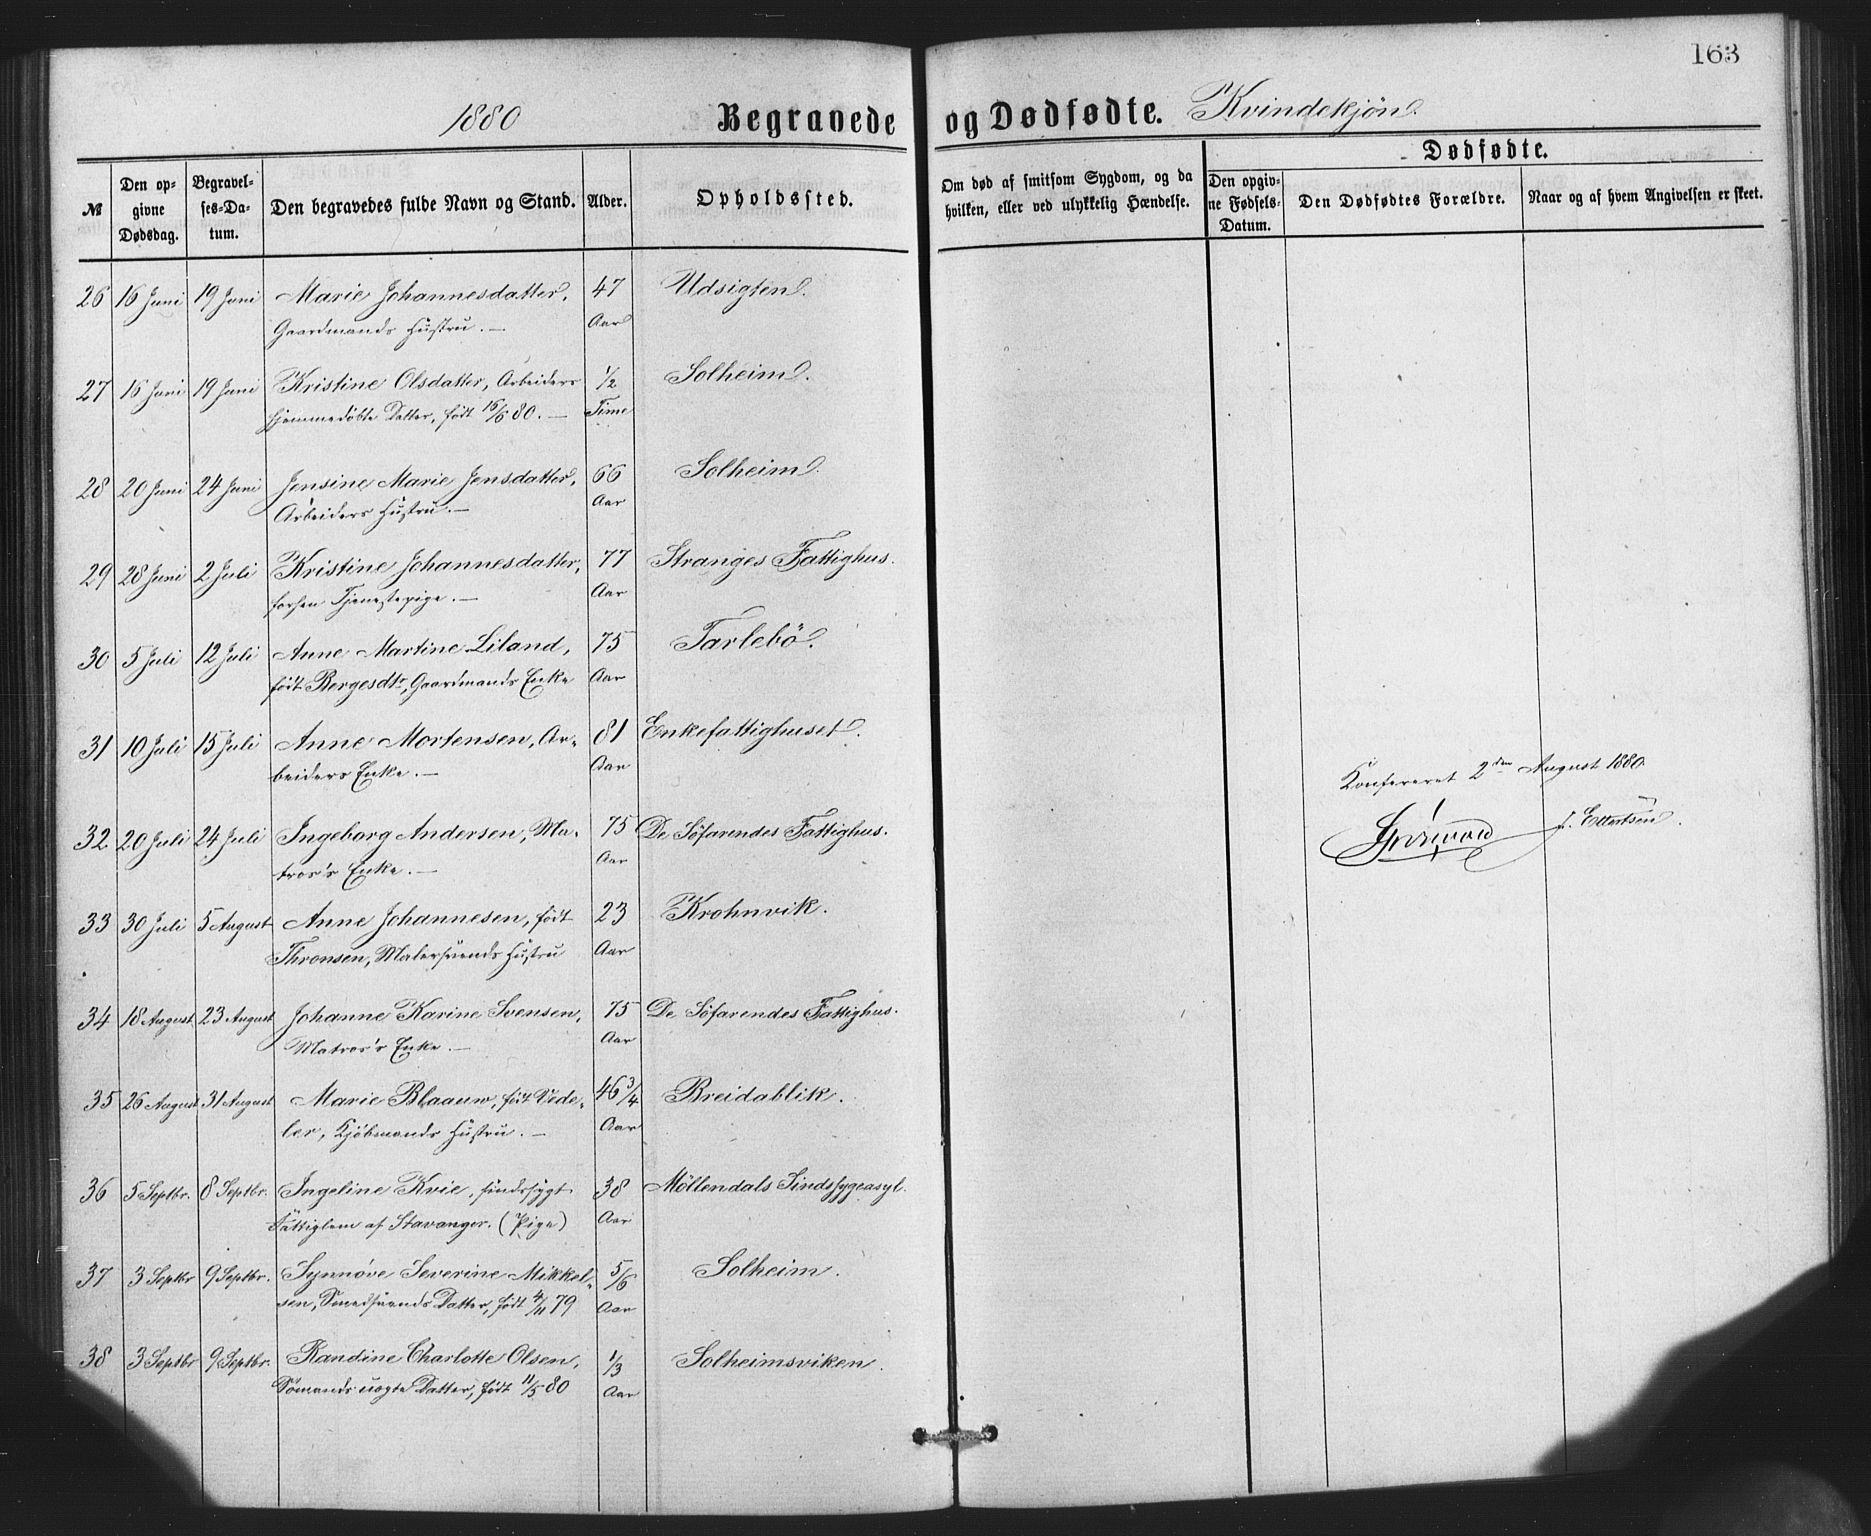 163
1880 Begravede og Dødfødte. Kvindekjøn.
Dødfødte.
№ Den op-givne Dødsdag. Begravel-ses-Da-tum. Den begravedes fulde Navn og Stand. Alder. Opholdssted. Om død af smitsom Sygdom, og da hvilken, eller ved ulykkelig Hændelse. Den opgiv-ne Fødsels-Datum. Den Dødfødtes Forældre. Naar og af hvem Angivelsen er skeet.
26 16 Juni 19 Juni Marie Johannesdatter, 47 Udsigten.
Gaardmands Hustru. — Aar
27 16 Juni 19 Juni Kristine Olsdatter, Arbeiders 1/2 Solheim.
hjemmedøbte Datter, født 16/6 80. — Time
28 20 Juni 24 Juni Jensine Marie Jensdatter, 66 Solheim.
Arbeiders Hustru. — Aar
29 28 Juni 2 Juli Kristine Johannesdatter, 77 Stranges Fattighus.
forhen Tjenestepige. — Aar
30 5 Juli 12 Juli Anne Martine Liland, 75 Tarlebö.
født Bergesdtr, Gaardmands Enke Aar
31 10 Juli 15 Juli Anne Mortensen, Ar- 81 Enkefattighuset.
beiders Enke. — Aar
Konfereret 2den August 1880.
32 20 Juli 24 Juli Ingeborg Andersen, Ma- 75 De Söfarendes Fattighus.
tros's Enke. — Aar
33 30 Juli 5 August Anne Johannesen, født 23 Krohnvik.
Thronsen, Malersvends Hustru Aar
34 18 August 23 August Johanne Karine Svensen, 75 De Söfarendes Fattighus.
Matros's Enke. — Aar
35 26 August 31 August Marie Blaauw, født Vede- 46 3/4 Breidablik.
ler, Kjøbmands Hustru. — Aar
36 5 Septbr. 8 Septbr. Ingeline Kvie, sindssygt 38 Möllendals Sindssygeasyl.
Fattiglem af Stavanger. (Pige) Aar
37 3 Septbr 9 Septbr. Synnöve Severine Mikkel- 5/6 Solheim.
sen, Smedsvends Datter, født 4/11 79 Aar
38 3 Septbr 9 Septbr. Randine Charlotte Olsen, 1/3 Solheimsviken.
Sømands uægte Datter, født 11/5 80 Aar